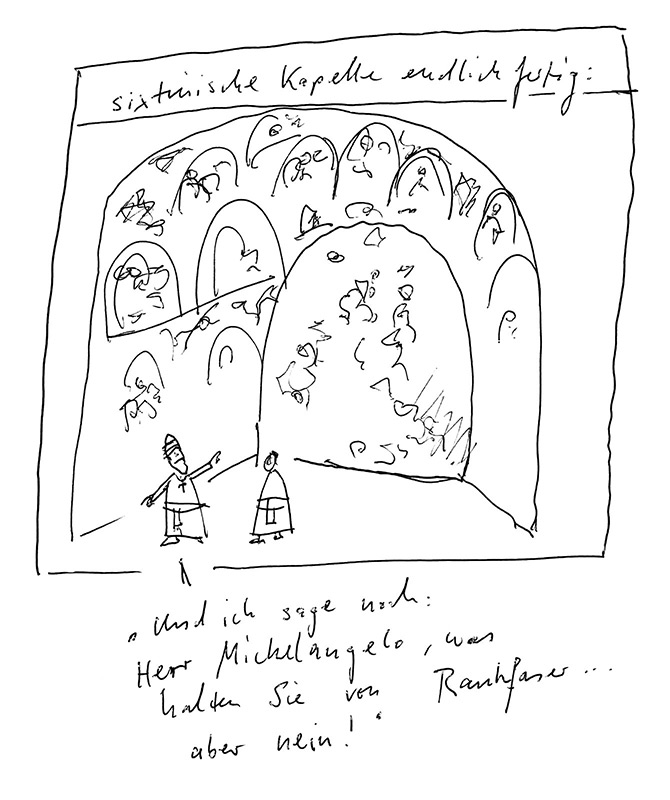 sixtinische Kapelle endlich fertig:
„Und ich sage noch:
Herr Michelangelo, was
halten Sie von Rauhfaser...
aber nein!“